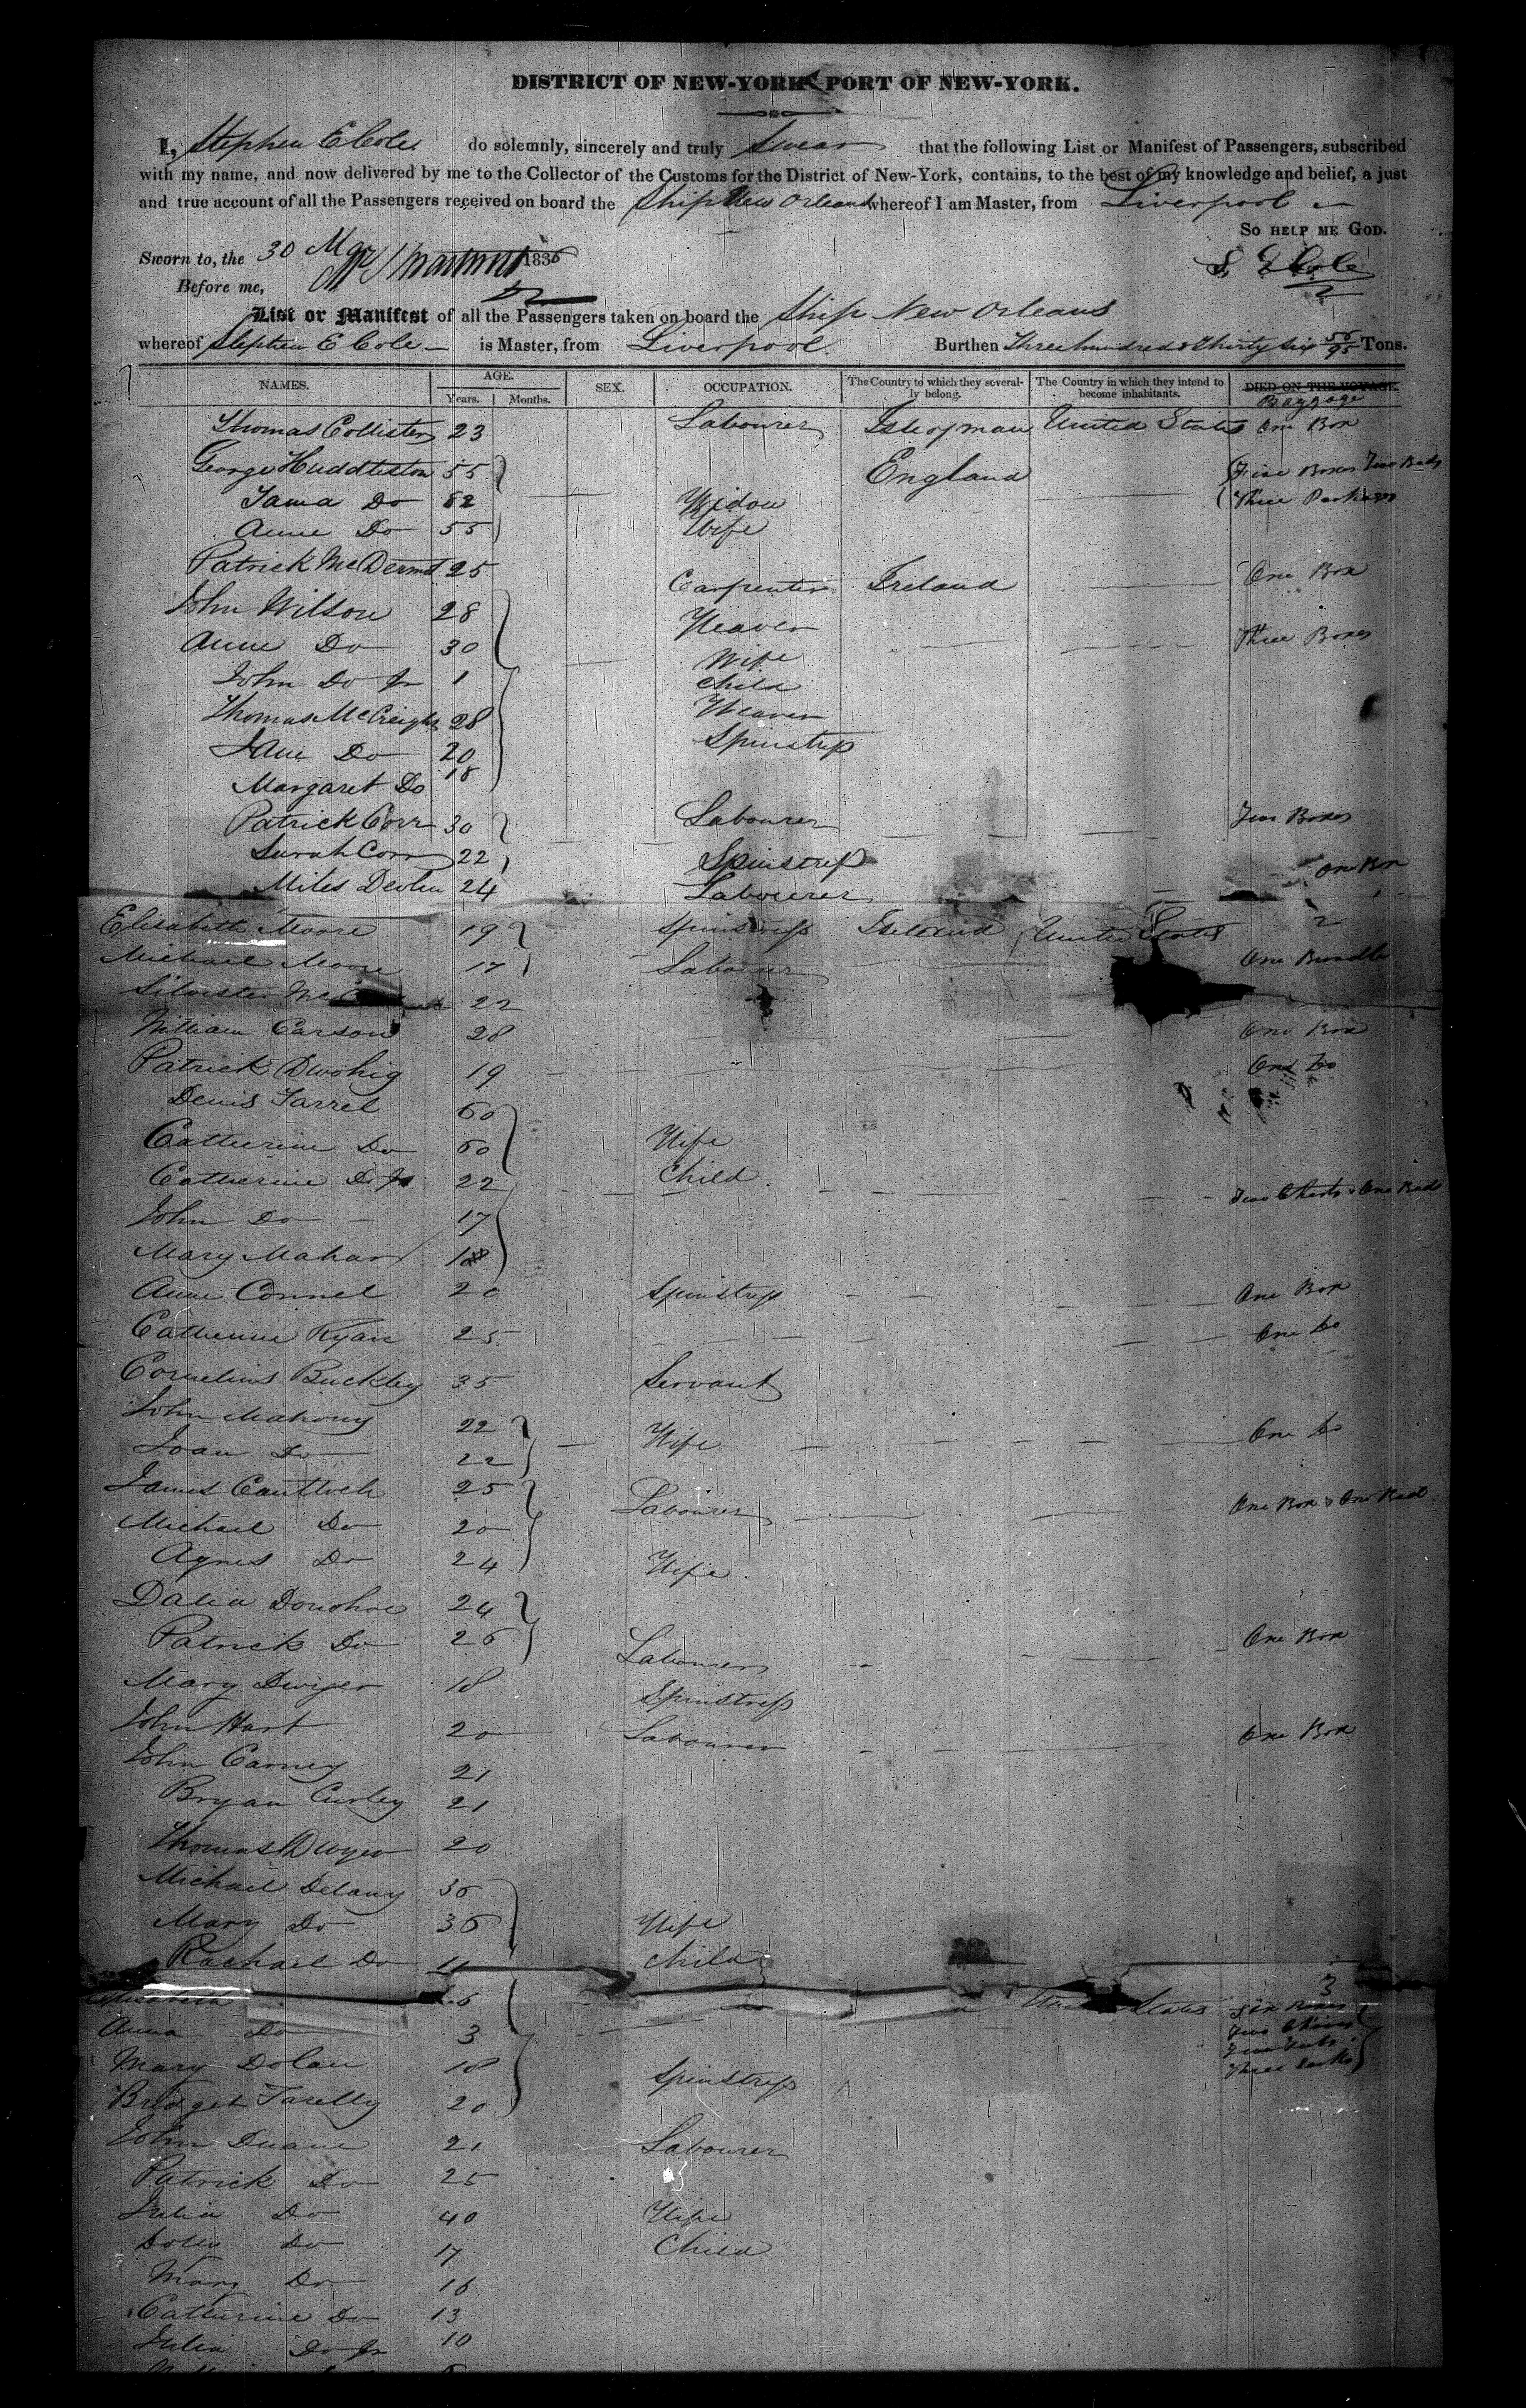 DISTRICT OF NEW-YORK PORT OF NEW-YORK.
I, Stephen E Cole do solemnly, sincerely and truly Swear that the following List or Manifest of Passengers, subscribed
with my name, and now delivered by me to the Collector of the Customs for the District of New-York, contains, to the best of my knowledge and belief, a just
and true account of all the Passengers received on board the Ship New Orleans whereof I am Master, from Liverpool
SO HELP ME GOD.
Sworn to, the 30 May 1836
S E Cole
Before me,
List or Manifest of all the Passengers taken on board the Ship New Orleans
whereof Stephen E Cole is Master, from Liverpool. Burthen Three hundred & Thirty Six 56/95 Tons.
NAMES. AGE. Years. Months. SEX. OCCUPATION. The Country to which they severally belong. The Country in which they intend to become inhabitants. DIED ON THE VOYAGE. Baggage
Thomas Collister 23 Labourer Isle of man United States One Box
George Huddleston 55 England Five Boxes Two Beds
Do 82 Widow Three Packages
Anne Do 55 Wife
Patrick McDermot 25 Carpenter Ireland One Box
John Wilson 28 Weaver
Anne Do 30 Wife Three Boxes
John Do Jr 1 Child
Thomas McCreight 28 Weaver
Jane Do 20 Spinstress
Margaret Do 18
Patrick Corr 30 Labourer Two Boxes
Sarah Corr 22 Spinstress
Miles Devlin 24 Labourer One Box
2
Elisabeth Moore 19 Spinstress Ireland United States
Michael Moore 17 Labourer One Bundle
Silvester 22
William Carson 28 One Box
Patrick Dwohig 19 One Do
Denis Farrel 60
Catherine Do 60 Wife
Catherine Do Jr 22 Child
John Do 17 Two Chests & One Bed
Mary Mahar 18
Anne Connel 20 Spinstress One Box
Catherine Ryan 25 One Do
Cornelius Buckley 35 Servant
John Mahony 22
Joan Do 22 Wife One Do
James 25 Labourer One Box & One Bed
Michael Do 20
Agnes Do 24 Wife
Dalia Donohoe 24
Patrick Do 26 Labourer One Box
Mary Dwyer 18 Spinstress
John Hart 20 Labourer One Box
John Carney 21
Bryan Curley 21
Thomas Dwyer 20
Michael Delany 36
Mary Do 36 Wife
Rachael Do 11 Child
3
Elisabeth 6 United States Six Boxes
Anna Do 3
Mary Dolan 18 Spinstress Three Sacks
Bridget Farelly 20
John Duane 21 Labourer
Patrick Do 25
Julia Do 40 Wife
Dolly Do 17 Child
Mary Do 16
Catherine Do 13
Julia Do Jr 10